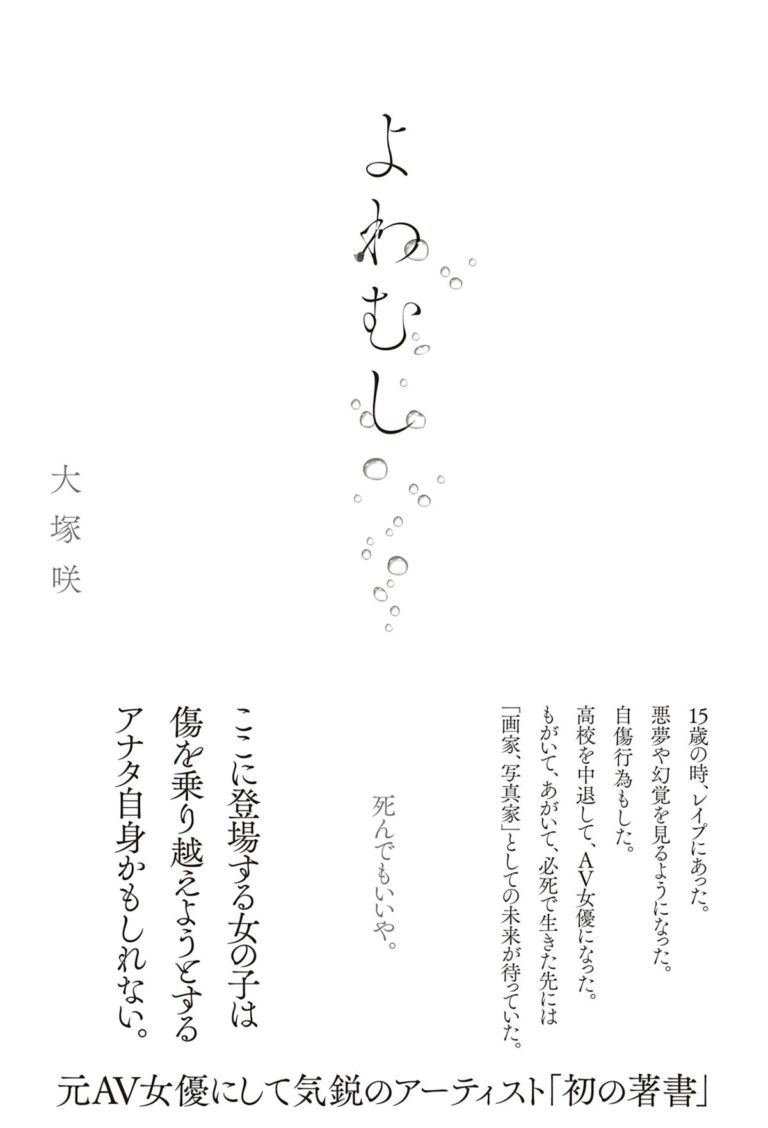 よわむし
大塚咲
15歳の時、レイプにあった。
悪夢や幻覚を見るようになった。
自傷行為もした。
高校を中退して、AV女優になった。
もがいて、あがいて、必死で生きた先には
「画家、写真家」としての未来が待っていた。
死んでもいいや。
ここに登場する女の子は
傷を乗り越えようとする
アナタ自身かもしれない。
元AV女優にして気鋭のアーティスト「初の著書」